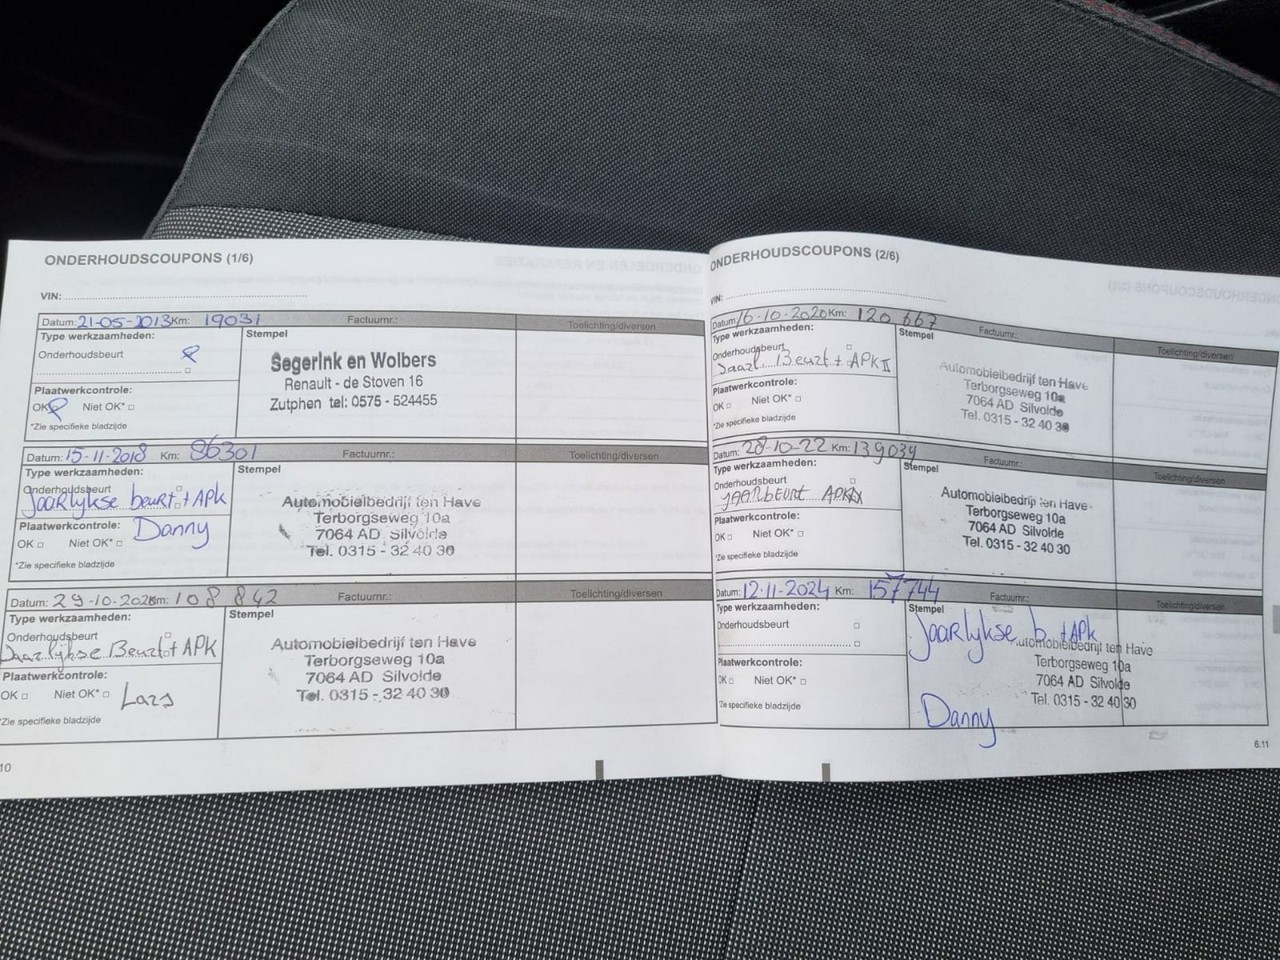 ONDERHOUDSCOUPONS (1/6)
VIN:
Datum: 21-05-2013 Km: 19031 Factuurnr.: Toelichting/diversen
Type werkzaamheden: Stempel
Onderhoudsbeurt
Segerink en Wolbers
Renault - de Stoven 16
Zutphen tel: 0575 - 524455
Plaatwerkcontrole:
OK Niet OK*
*Zie specifieke bladzijde
Datum: 15-11-2018 Km: 96301 Factuurnr.: Toelichting/diversen
Type werkzaamheden: Stempel
Onderhoudsbeurt
Jaarlykse beurt + APK
Automobielbedrijf ten Have
Terborgseweg 10a
7064 AD Silvolde
Tel. 0315 - 32 40 30
Plaatwerkcontrole:
Danny
OK Niet OK*
*Zie specifieke bladzijde
Datum: 29-10-202 Km: 108 842 Factuurnr.: Toelichting/diversen
Type werkzaamheden: Stempel
Onderhoudsbeurt
Jaarlijkse Beurt + APK
Automobielbedrijf ten Have
Terborgseweg 10a
7064 AD Silvolde
Tel. 0315 - 32 40 30
Plaatwerkcontrole:
OK Niet OK*
Lars
*Zie specifieke bladzijde
10
ONDERHOUDSCOUPONS (2/6)
VIN:
Datum: 16-10-2020 Km: 120 667 Factuurnr.: Toelichting/diversen
Type werkzaamheden: Stempel
Onderhoudsbeurt
Jaarl. Beurt + APK II
Automobielbedrijf ten Have
Terborgseweg 10a
7064 AD Silvolde
Tel. 0315 - 32 40 30
Plaatwerkcontrole:
OK Niet OK*
*Zie specifieke bladzijde
Datum: 28-10-22 Km: 139034 Factuurnr.: Toelichting/diversen
Type werkzaamheden: Stempel
Onderhoudsbeurt
jaarbeurt
Automobielbedrijf ten Have
Terborgseweg 10a
7064 AD Silvolde
Tel. 0315 - 32 40 30
Plaatwerkcontrole:
OK Niet OK*
*Zie specifieke bladzijde
Datum: 12-11-2024 Km: 157744 Factuurnr.: Toelichting/diversen
Type werkzaamheden: Stempel
Onderhoudsbeurt
Jaarlykse b. + APK
Automobielbedrijf ten Have
Terborgseweg 10a
7064 AD Silvolde
Tel. 0315 - 32 40 30
Plaatwerkcontrole:
OK Niet OK*
*Zie specifieke bladzijde
Danny
6.11